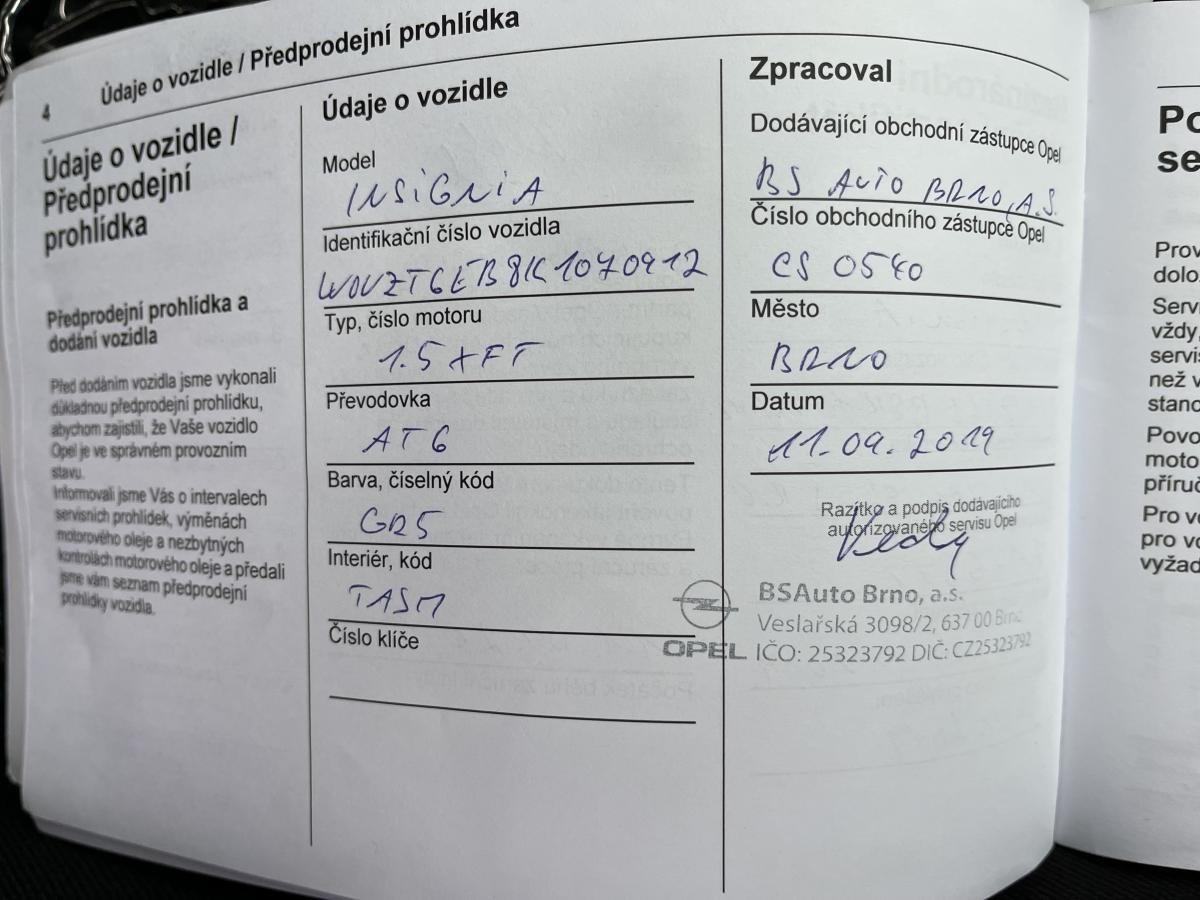 4 Údaje o vozidle / Předprodejní prohlídka
Údaje o vozidle /
Předprodejní
prohlídka
Předprodejní prohlídka a
dodání vozidla
Před dodáním vozidla jsme vykonali
důkladnou předprodejní prohlídku,
abychom zajistili, že Vaše vozidlo
Opel je ve správném provozním
stavu.
Informovali jsme Vás o intervalech
servisních prohlídek, výměnách
motorového oleje a nezbytných
kontrolách motorového oleje a předali
jsme vám seznam předprodejní
prohlídky vozidla.
Údaje o vozidle
Model
INSIGNIA
Identifikační číslo vozidla
W0VZT6EB8K1070912
Typ, číslo motoru
1.5 XFT
Převodovka
AT6
Barva, číselný kód
GR5
Interiér, kód
TASM
Číslo klíče
Zpracoval
Dodávající obchodní zástupce Opel
BS AUTO BRNO, A.S.
Číslo obchodního zástupce Opel
CS 0540
Město
BRNO
Datum
11.09.2019
Razítko a podpis dodávajícího
autorizovaného servisu Opel
BSAuto Brno, a.s.
Veslařská 3098/2, 637 00 Brno
OPEL IČO: 25323792 DIČ: CZ25323792
Po
se
Prov
dolo
Serv
vždy,
servis
než v
stano
Povo
moto
příruč
Pro vo
pro vo
vyžad